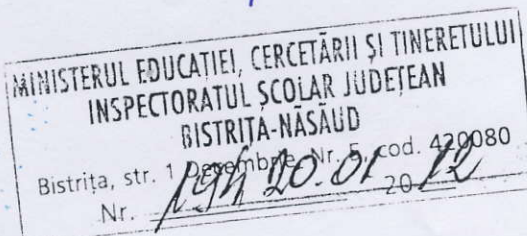 MINISTERUL EDUCAȚIEI, CERCETĂRII ȘI TINERETULUI
INSPECTORATUL ȘCOLAR JUDEȚEAN
BISTRIȚA-NĂSĂUD
Bistrița, str. 1 Decembrie, Nr. 5, cod. 420080
Nr. 20.01 20 12